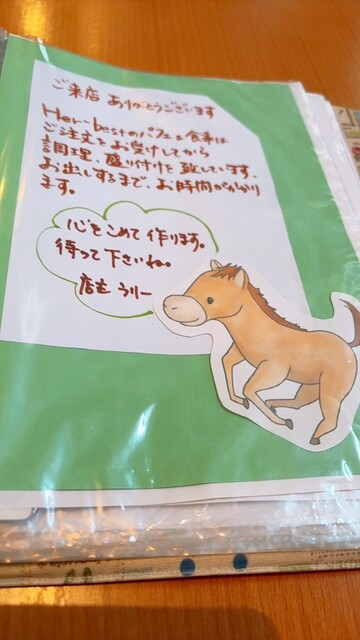 ご来店 ありがとうございます
Her-bestのパフェ&食事は
ご注文をお受けしてから
調理、盛り付けを致しています。
お出しするまで、お時間がかかり
ます。
心をこめて 作ります。
待って下さいね。
店主 ラリー